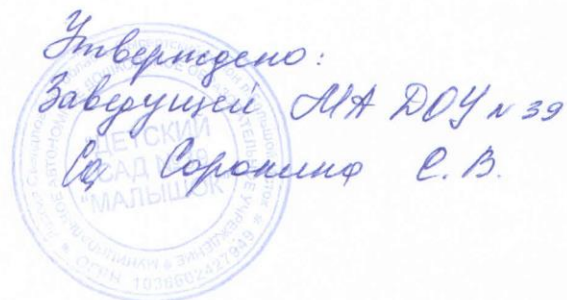 Утверждено:
Заведующей МА ДОУ № 39
Сорокина С. В.
"ДЕТСКИЙ
САД № 39
"МАЛЫШОК"
ОГРН 1036602427949